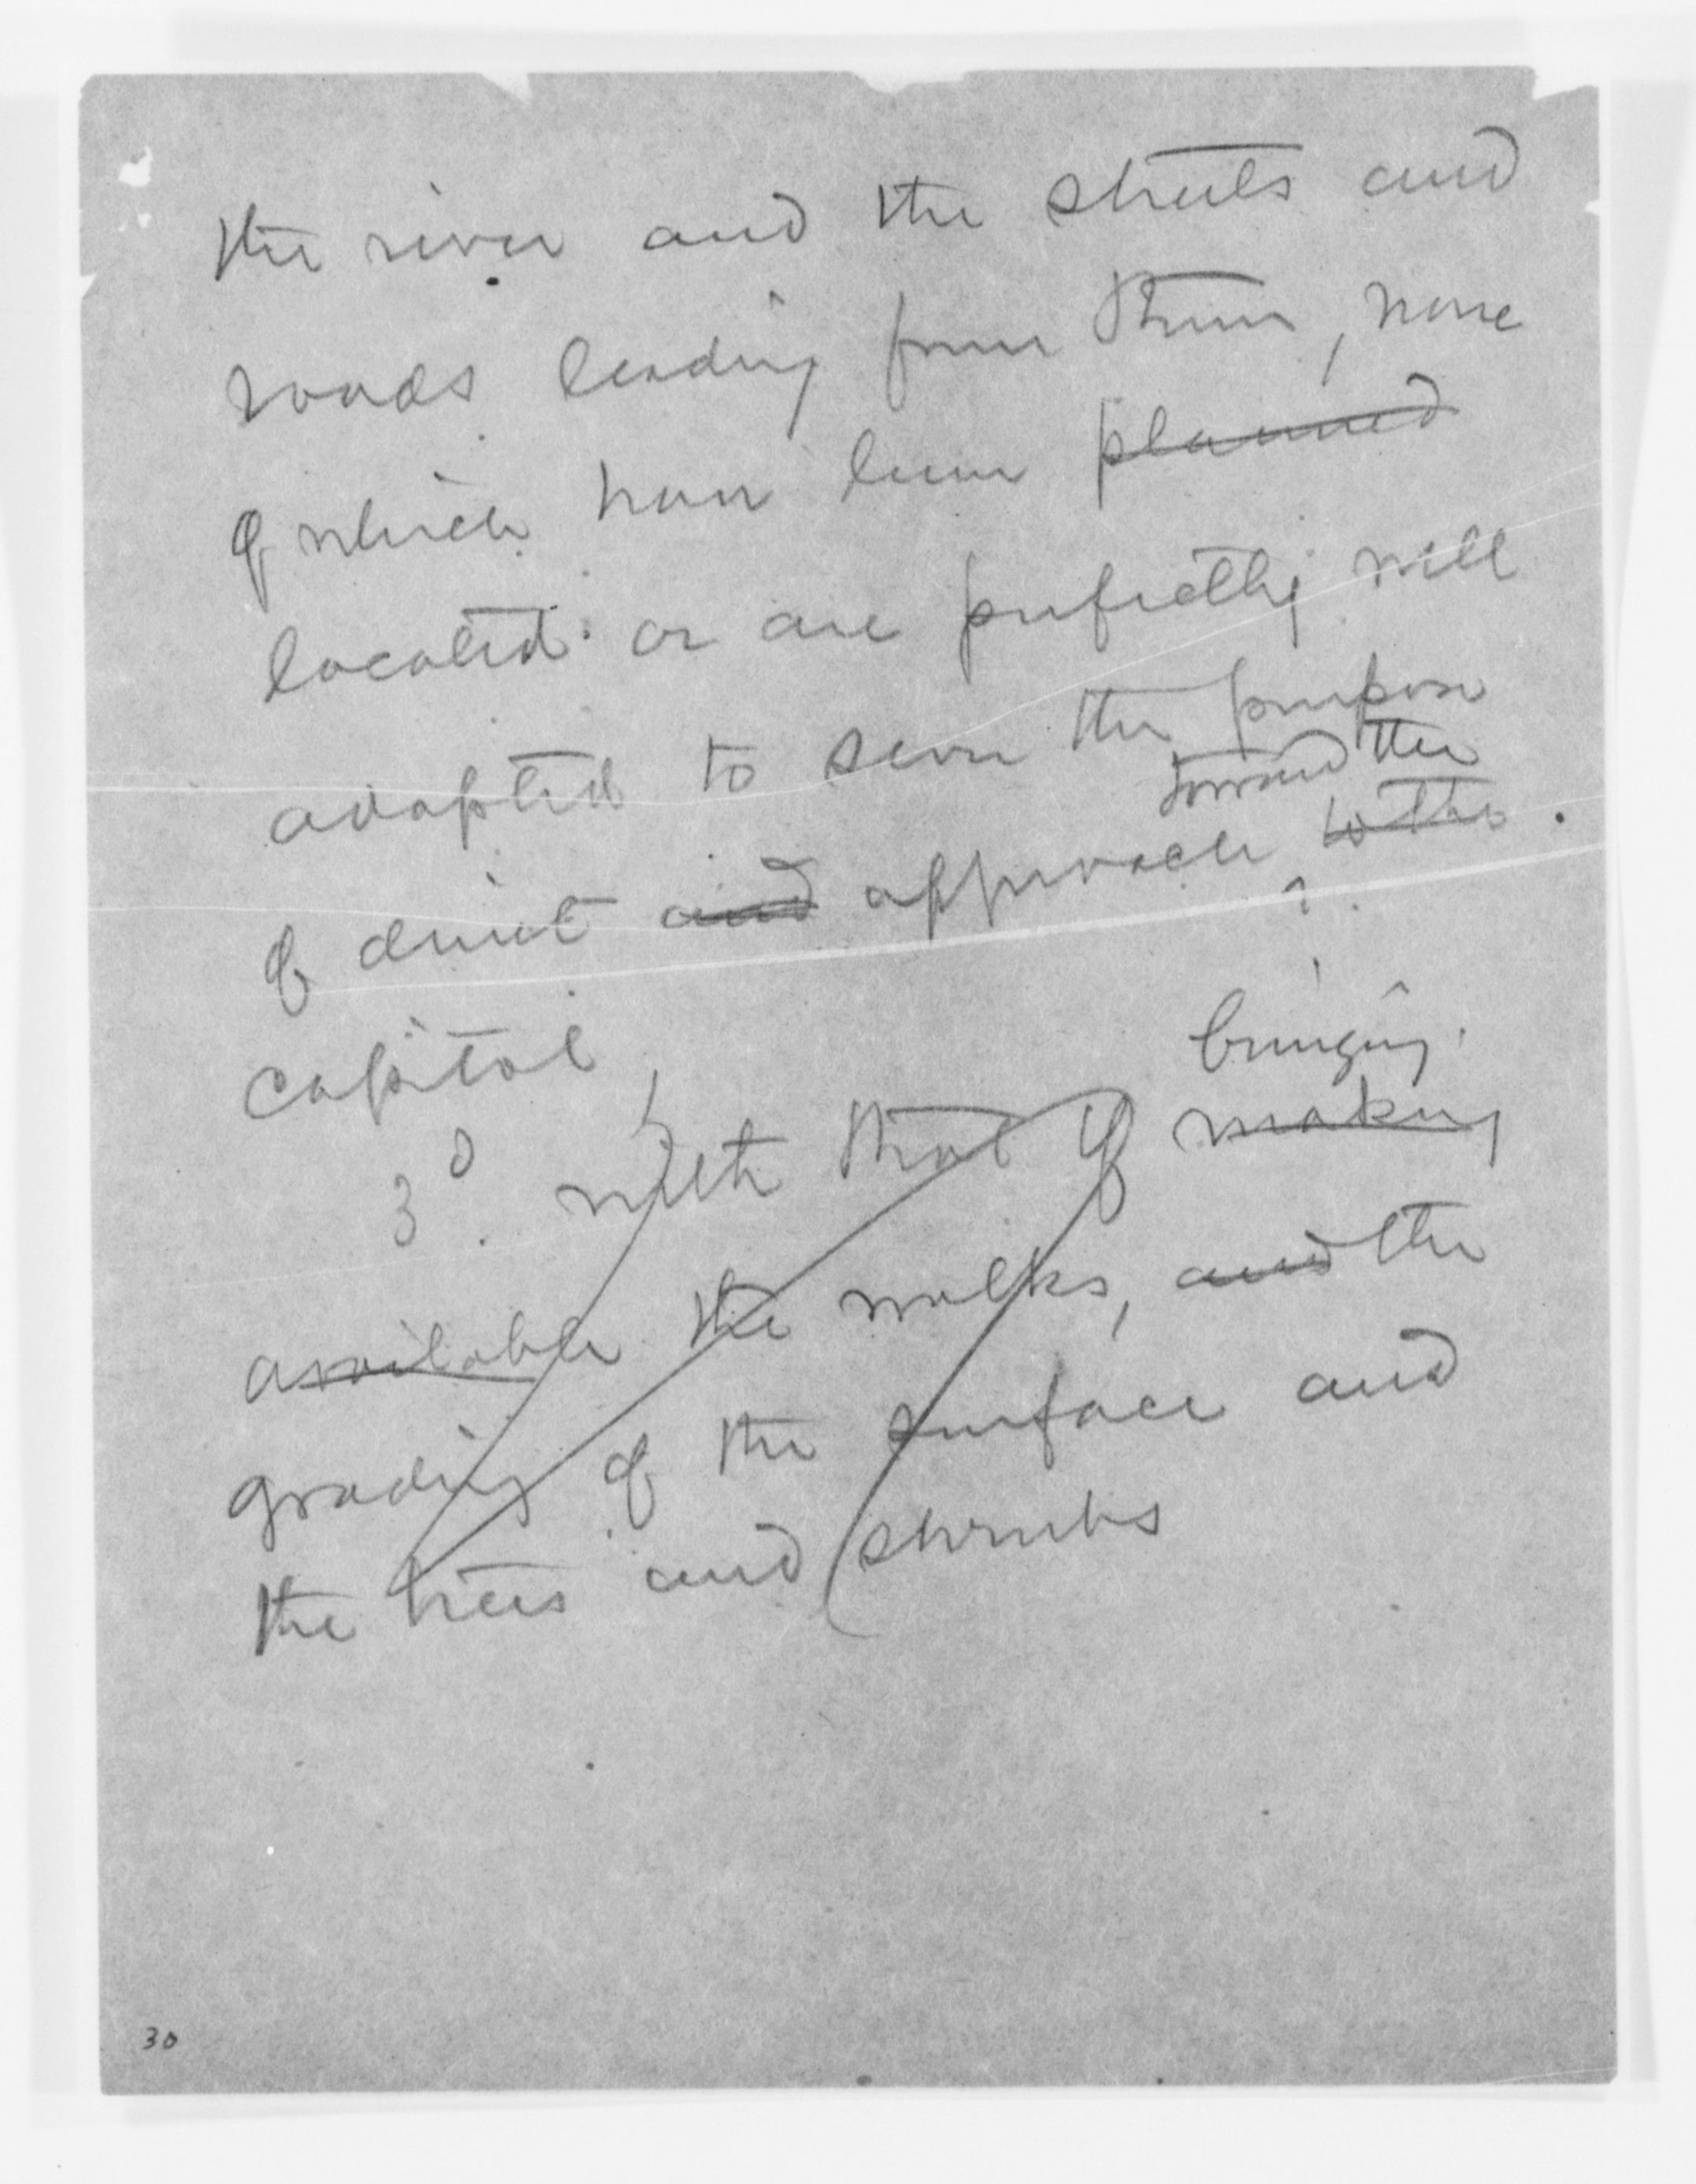 the river and the streets and
roads leading from them, none
of which have been planned
located or are perfectly well
adapted to serve the purpose
toward the
of direct and approach to the
capitol,
bringing
3° with that of making
available the walks, and the
grading of the surface and
the trees and shrubs
30